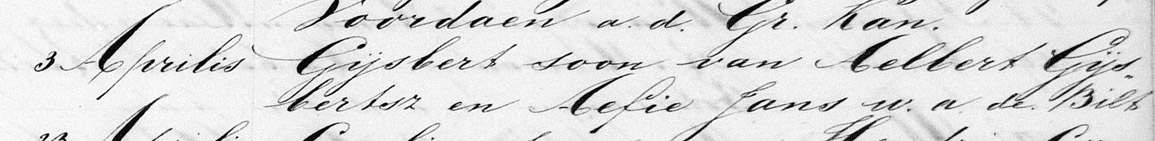 Voordaen a. d. Gr. Kan.
3 Aprilis Gijsbert soon van Aelbert Gijs„
bertsz en Aefie Jans w. a de Bilt